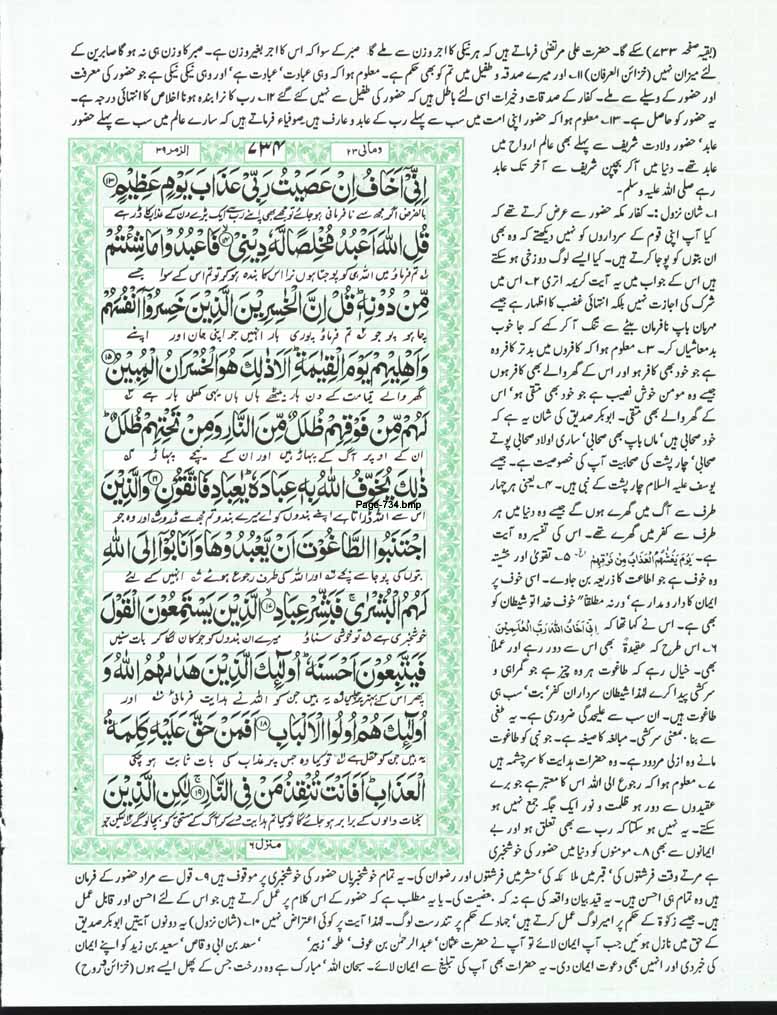 (بقیہ صفحہ ۷۳۳) سکے گا۔ حضرت علی مرتضٰی فرماتے ہیں کہ ہر نیکی کا اجر وزن سے ملے گا صبر کے سوا کہ اس کا اجر بغیر وزن ہے۔ صبر کا وزن ہی نہ ہو گا صابرین کے
لئے میزان نہیں (خزائن العرفان) ۱۱۔ اور میرے صدقہ و طفیل میں تم کو بھی حکم ہے۔ معلوم ہوا کہ وہی عبادت' عبادت ہے' اور وہی نیکی نیکی ہے جو حضور کی معرفت
اور حضور کے وسیلے سے ملے۔ کفار کے صدقات و خیرات اسی لئے باطل ہیں کہ حضور کی طفیل سے نہیں کئے گئے ۱۲۔ رب کا نرا بندہ ہونا اخلاص کا انتہائی درجہ ہے۔
یہ حضور کو حاصل ہے۔ ۱۳۔ معلوم ہوا کہ حضور اپنی امت میں سب سے پہلے رب کے عابد و عارف ہیں صوفیاء فرماتے ہیں کہ سارے عالم میں سب سے پہلے حضور
عابد' حضور ولادت شریف سے پہلے بھی عالم ارواح میں
عابد تھے۔ دنیا میں آکر بچپن شریف سے آخر تک عابد
رہے صلی اللہ علیہ وسلم۔
۱۔ شان نزول :۔ کفار مکہ حضور سے عرض کرتے تھے کہ
کیا آپ اپنی قوم کے سرداروں کو نہیں دیکھتے کہ وہ بھی
ان بتوں کو پوجا کرتے ہیں۔ کیا ایسے لوگ دوزخی ہو سکتے
ہیں اس کے جواب میں یہ آیت کریمہ اتری ۲۔ اس میں
شرک کی اجازت نہیں بلکہ انتہائی غضب کا اظہار ہے جیسے
مہربان باپ نافرمان بیٹے سے تنگ آ کر کہے کہ جا خوب
بدمعاشیاں کر۔ ۳۔ معلوم ہوا کہ کافروں میں بدتر کافر وہ
ہے جو خود بھی کافر ہو اور اس کے گھر والے بھی کافر ہوں
جیسے وہ مومن خوش نصیب ہے جو خود بھی متقی ہو' اس
کے گھر والے بھی متقی۔ ابوبکر صدیق کی شان یہ ہے کہ
خود صحابی ہیں' ماں باپ بھی صحابی' ساری اولاد صحابی پوتے
صحابی' چار پشت کی صحابیت آپ کی خصوصیت ہے۔ جیسے
یوسف علیہ السلام چار پشت کے نبی ہیں۔ ۴۔ یعنی ہر چہار
طرف سے آگ میں گھرے ہوں گے جیسے وہ دنیا میں ہر
طرف سے کفر میں گھرے تھے۔ اس کی تفسیر وہ آیت
ہے۔ یَوْمَ یَغْشٰهُمُ الْعَذَابُ مِنْ فَوْقِهِمْ ۵۔ تقویٰ اور خشیتہ
وہ خوف ہے جو اطاعت کا ذریعہ بن جاوے۔ اسی خوف پر
ایمان کا دارومدار ہے' ورنہ مطلقاً خوف خدا تو شیطان کو
بھی ہے۔ اس نے کہا تھا کہ اِنِّیْ اَخَافُ اللّٰهَ رَبَّ الْعٰلَمِیْنَ
۶۔ اس طرح کہ عقیدۃً بھی اس سے دور رہے اور عملاً
بھی۔ خیال رہے کہ طاغوت ہر وہ چیز ہے جو گمراہی و
سرکشی پیدا کرے لہٰذا شیطان سرداران کفر' بت' سب ہی
طاغوت ہیں۔ ان سب سے علیحدگی ضروری ہے۔ یہ طغی
سے بنا۔ بمعنی سرکشی۔ مبالغہ کا صیغہ ہے۔ جو نبی کو طاغوت
مانے وہ ازلی مردود ہے۔ وہ حضرات ہدایت کا سرچشمہ ہیں
۷۔ معلوم ہوا کہ رجوع الی اللہ اس کا معتبر ہے جو برے
عقیدوں سے دور ہو ظلمت و نور ایک جگہ جمع نہیں ہو
سکتے۔ یہ نہیں ہو سکتا کہ رب سے بھی تعلق ہو اور بے
ایمانوں سے بھی ۸۔ مومنوں کو دنیا میں حضور کی خوشخبری
ومالی ۲۳ ۷۳۴ الزمر ۳۹
اِنِّیْۤ اَخَافُ اِنْ عَصَیْتُ رَبِّیْ عَذَابَ یَوْمٍ عَظِیْمٍ ﴿۱۳﴾
قُلِ اللّٰهَ اَعْبُدُ مُخْلِصًا لَّهٗ دِیْنِیْ ﴿۱۴﴾ فَاعْبُدُوْا مَا شِئْتُمْ
تم فرماؤ میں اللہ ہی کو پوجتا ہوں نرا اس کا بندہ ہو کر تو تم اس کے سوا جسے
مِّنْ دُوْنِهٖ قُلْ اِنَّ الْخٰسِرِیْنَ الَّذِیْنَ خَسِرُوْۤا اَنْفُسَهُمْ
چاہو پوجو تم فرماؤ پوری ہار انہیں جو اپنی جان اور اپنے
وَاَهْلِیْهِمْ یَوْمَ الْقِیٰمَةِ اَلَا ذٰلِكَ هُوَ الْخُسْرَانُ الْمُبِیْنُ ﴿۱۵﴾
گھر والے قیامت کے دن ہار بیٹھے ہاں ہاں یہی کھلی ہار ہے
لَهُمْ مِّنْ فَوْقِهِمْ ظُلَلٌ مِّنَ النَّارِ وَمِنْ تَحْتِهِمْ ظُلَلٌ
ان کے اوپر آگ کے پہاڑ ہیں اور ان کے نیچے پہاڑ
ذٰلِكَ یُخَوِّفُ اللّٰهُ بِهٖ عِبَادَهٗ یٰعِبَادِ فَاتَّقُوْنِ ﴿۱۶﴾ وَالَّذِیْنَ
Page-734.bmp
اس سے اللہ ڈراتا ہے اپنے بندوں کو اے میرے بندو تم مجھ سے ڈرو اور وہ جو
اجْتَنَبُوا الطَّاغُوْتَ اَنْ یَّعْبُدُوْهَا وَاَنَابُوْۤا اِلَی اللّٰهِ
بتوں کی پوجا سے بچے اور اللہ کی طرف رجوع ہوئے انہیں کے لئے
لَهُمُ الْبُشْرٰی فَبَشِّرْ عِبَادِ ﴿۱۷﴾ الَّذِیْنَ یَسْتَمِعُوْنَ الْقَوْلَ
خوشخبری ہے تو خوشی سناؤ میرے ان بندوں کو جو کان لگا کر بات سنیں
فَیَتَّبِعُوْنَ اَحْسَنَهٗ اُولٰٓئِكَ الَّذِیْنَ هَدٰىهُمُ اللّٰهُ وَ
پھر اس کے بہتر پر چلیں یہ ہیں جن کو اللہ نے ہدایت فرمائی اور
اُولٰٓئِكَ هُمْ اُولُوا الْاَلْبَابِ ﴿۱۸﴾ اَفَمَنْ حَقَّ عَلَیْهِ كَلِمَةُ
یہ ہیں جن کو عقل ہے تو کیا وہ جس پر عذاب کی بات ثابت ہو چکی
الْعَذَابِ اَفَاَنْتَ تُنْقِذُ مَنْ فِی النَّارِ ﴿۱۹﴾ لٰكِنِ الَّذِیْنَ
منزل ۶
ہے مرتے وقت فرشتوں کی' قبر میں ملائکہ کی' حشر میں فرشتوں اور رضوان کی۔ یہ تمام خوشخبریاں حضور کی خوشخبری پر موقوف ہیں ۹۔ قول سے مراد حضور کے فرمان
ہیں وہ تمام ہی احسن ہیں۔ یہ قید بیان واقعہ کی ہے نہ کہ حیثیت کی۔ یا یہ مطلب ہے کہ حضور کے اس کلام پر عمل کرتے ہیں جو اس کے لئے احسن اور قابل عمل
ہیں۔ جیسے زکوٰۃ کے حکم پر امیر لوگ عمل کرتے ہیں' جہاد کے حکم پر تندرست لوگ۔ لہٰذا آیت پر کوئی اعتراض نہیں ۱۰۔ (شان نزول) یہ دونوں آیتیں ابوبکر صدیق
کے حق میں نازل ہوئیں جب آپ ایمان لائے تو آپ نے حضرت عثمان' عبدالرحمٰن بن عوف' طلحہ' زبیر' سعد بن ابی وقاص' سعید بن زید کو اپنے ایمان
کی خبر دی اور انہیں بھی دعوت ایمان دی۔ یہ حضرات بھی آپ کی تبلیغ سے ایمان لائے۔ سبحان اللہ' مبارک ہے وہ درخت جس کے پھل ایسے ہوں (خزائن و روح)